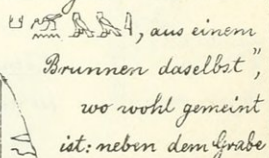 , aus einem
Brunnen daselbst",
wo wohl gemeint
ist: neben dem Grabe